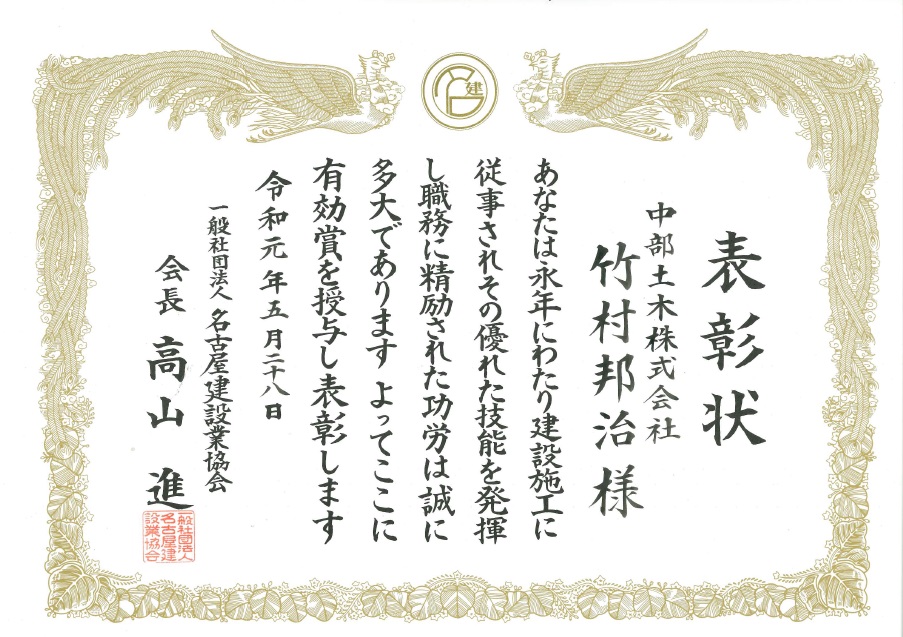 建
表彰状
中部土木株式会社
竹村邦治様
あなたは永年にわたり建設施工に
従事されその優れた技能を発揮
し職務に精励された功労は誠に
多大であります よってここに
有効賞を授与し表彰します
令和元年五月二十八日
一般社団法人 名古屋建設業協会
会長 高山 進
一般社団法人
名古屋建
設業協会